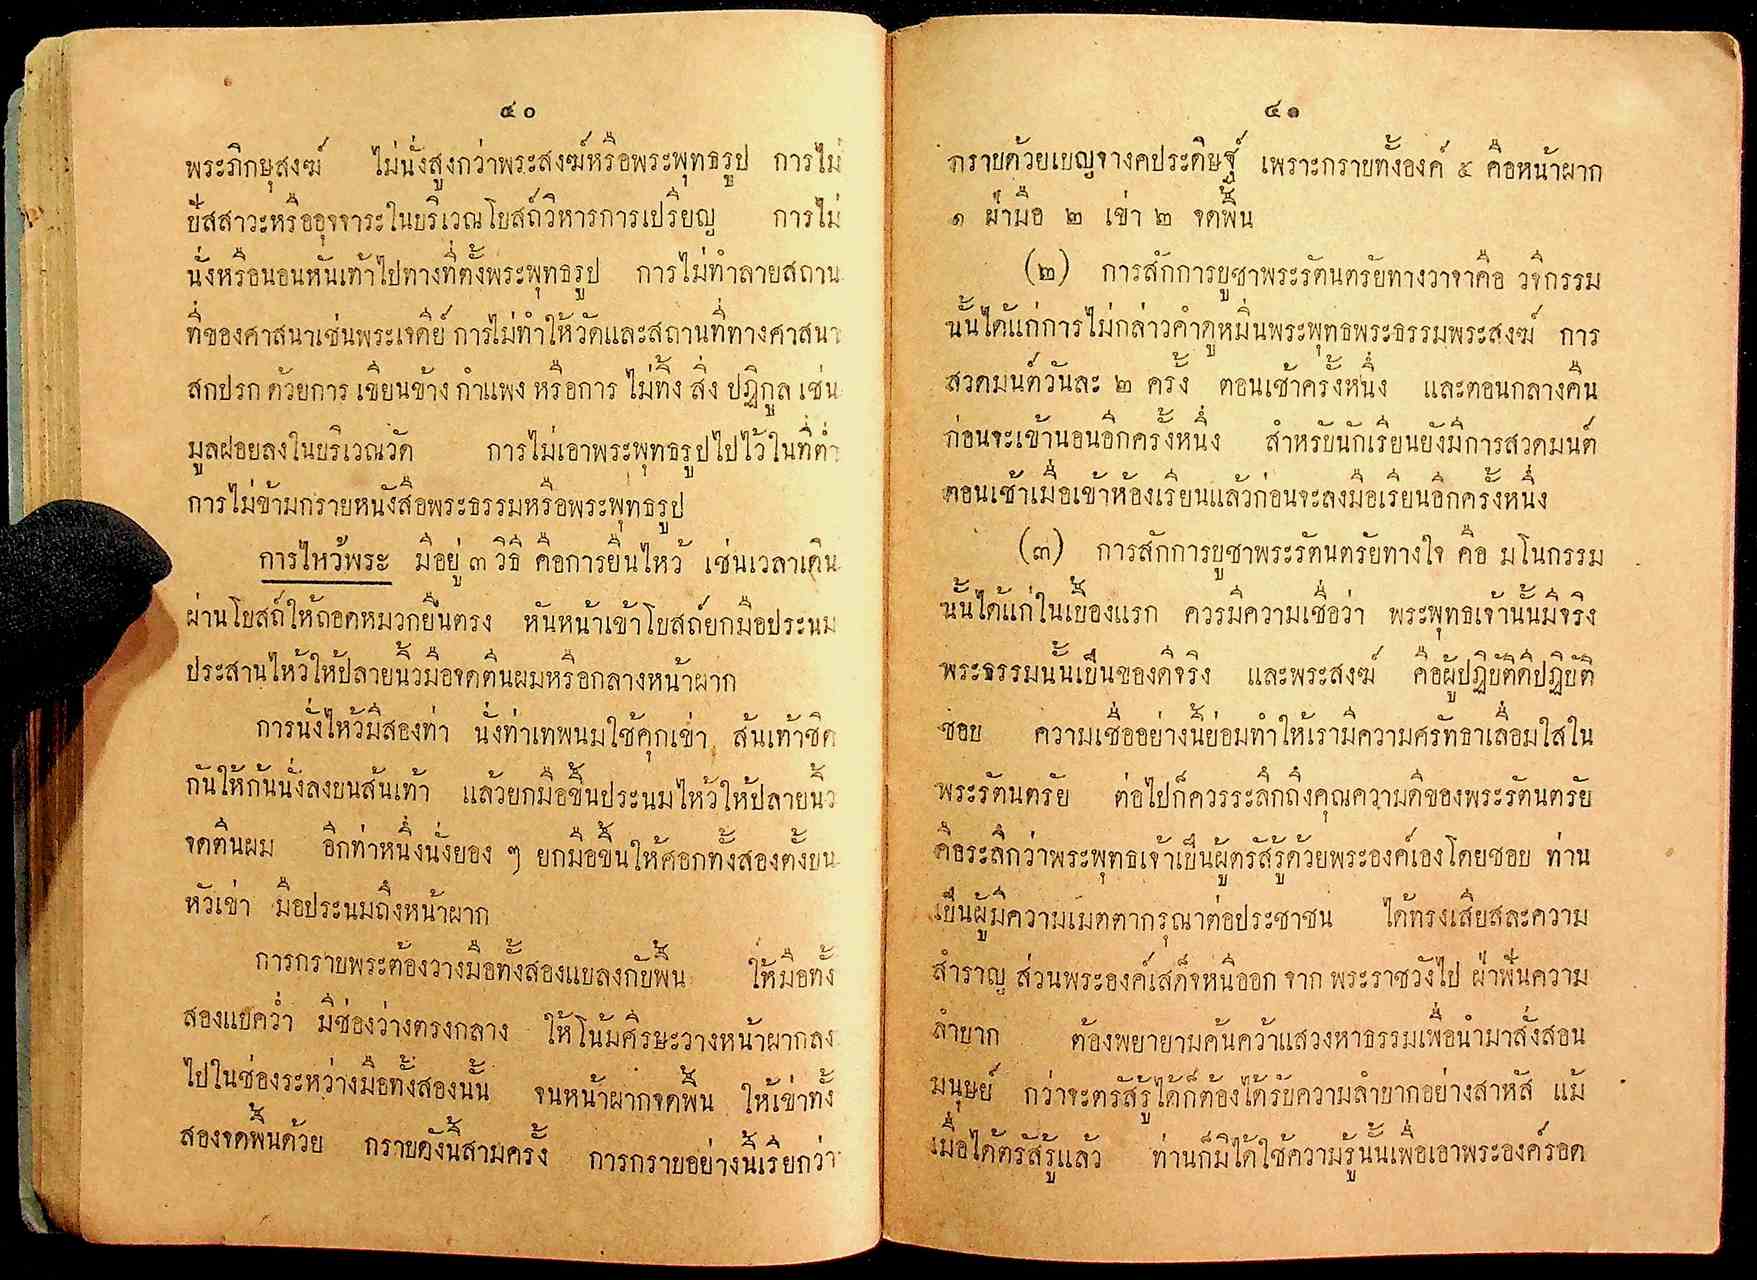 ๔๐
พระภิกษุสงฆ์ ไม่นั่งสูงกว่าพระสงฆ์หรือพระพุทธรูป การไม่
ปัสสาวะหรืออุจจาระในบริเวณโบสถ์วิหารการเปรียญ การไม่
นั่งหรือนอนหันเท้าไปทางที่ตั้งพระพุทธรูป การไม่ทำลายสถาน
ที่ของศาสนาเช่นพระเจดีย์ การไม่ทำให้วัดและสถานที่ทางศาสนา
สกปรก ด้วยการ เขียนข้าง กำแพง หรือการ ไม่ทิ้ง สิ่ง ปฏิกูล เช่น
มูลฝอยลงในบริเวณวัด การไม่เอาพระพุทธรูปไปไว้ในที่ต่ำ
การไม่ข้ามกรายหนังสือพระธรรมหรือพระพุทธรูป
การไหว้พระ มีอยู่ ๓ วิธี คือการยืนไหว้ เช่นเวลาเดิน
ผ่านโบสถ์ให้ถอดหมวกยืนตรง หันหน้าเข้าโบสถ์ยกมือประนม
ประสานไหว้ให้ปลายนิ้วมือจดตีนผมหรือกลางหน้าผาก
การนั่งไหว้มีสองท่า นั่งท่าเทพนมใช้คุกเข่า ส้นเท้าชิด
กันให้ก้นนั่งลงบนส้นเท้า แล้วยกมือขึ้นประนมไหว้ให้ปลายนิ้ว
จดตีนผม อีกท่าหนึ่งนั่งยอง ๆ ยกมือขึ้นให้ศอกทั้งสองตั้งบน
หัวเข่า มือประนมถึงหน้าผาก
การกราบพระต้องวางมือทั้งสองแบลงกับพื้น ให้มือทั้ง
สองแบคว่ำ มีช่องว่างตรงกลาง ให้โน้มศีรษะวางหน้าผากลง
ไปในช่องระหว่างมือทั้งสองนั้น จนหน้าผากจดพื้น ให้เข่าทั้ง
สองจดพื้นด้วย กราบดังนี้สามครั้ง การกราบอย่างนี้เรียกว่า
๔๑
กราบด้วยเบญจางคประดิษฐ์ เพราะกราบทั้งองค์ ๕ คือหน้าผาก
๑ ฝ่ามือ ๒ เข่า ๒ จดพื้น
(๒) การสักการบูชาพระรัตนตรัยทางวาจาคือ วจีกรรม
นั้นได้แก่การไม่กล่าวคำดูหมิ่นพระพุทธพระธรรมพระสงฆ์ การ
สวดมนต์วันละ ๒ ครั้ง ตอนเช้าครั้งหนึ่ง และตอนกลางคืน
ก่อนจะเข้านอนอีกครั้งหนึ่ง สำหรับนักเรียนยังมีการสวดมนต์
ตอนเช้าเมื่อเข้าห้องเรียนแล้วก่อนจะลงมือเรียนอีกครั้งหนึ่ง
(๓) การสักการบูชาพระรัตนตรัยทางใจ คือ มโนกรรม
นั้นได้แก่ในเบื้องแรก ควรมีความเชื่อว่า พระพุทธเจ้านั้นมีจริง
พระธรรมนั้นเป็นของดีจริง และพระสงฆ์ คือผู้ปฏิบัติดีปฏิบัติ
ชอบ ความเชื่ออย่างนี้ย่อมทำให้เรามีความศรัทธาเลื่อมใสใน
พระรัตนตรัย ต่อไปก็ควรระลึกถึงคุณความดีของพระรัตนตรัย
คือระลึกว่าพระพุทธเจ้าเป็นผู้ตรัสรู้ด้วยพระองค์เองโดยชอบ ท่าน
เป็นผู้มีความเมตตากรุณาต่อประชาชน ได้ทรงเสียสละความ
สำราญ ส่วนพระองค์เสด็จหนีออก จาก พระราชวังไป ฝ่าฟันความ
ลำบาก ต้องพยายามค้นคว้าแสวงหาธรรมเพื่อนำมาสั่งสอน
มนุษย์ กว่าจะตรัสรู้ได้ก็ต้องได้รับความลำบากอย่างสาหัส แม้
เมื่อได้ตรัสรู้แล้ว ท่านก็มิได้ใช้ความรู้นั้นเพื่อเอาพระองค์รอด